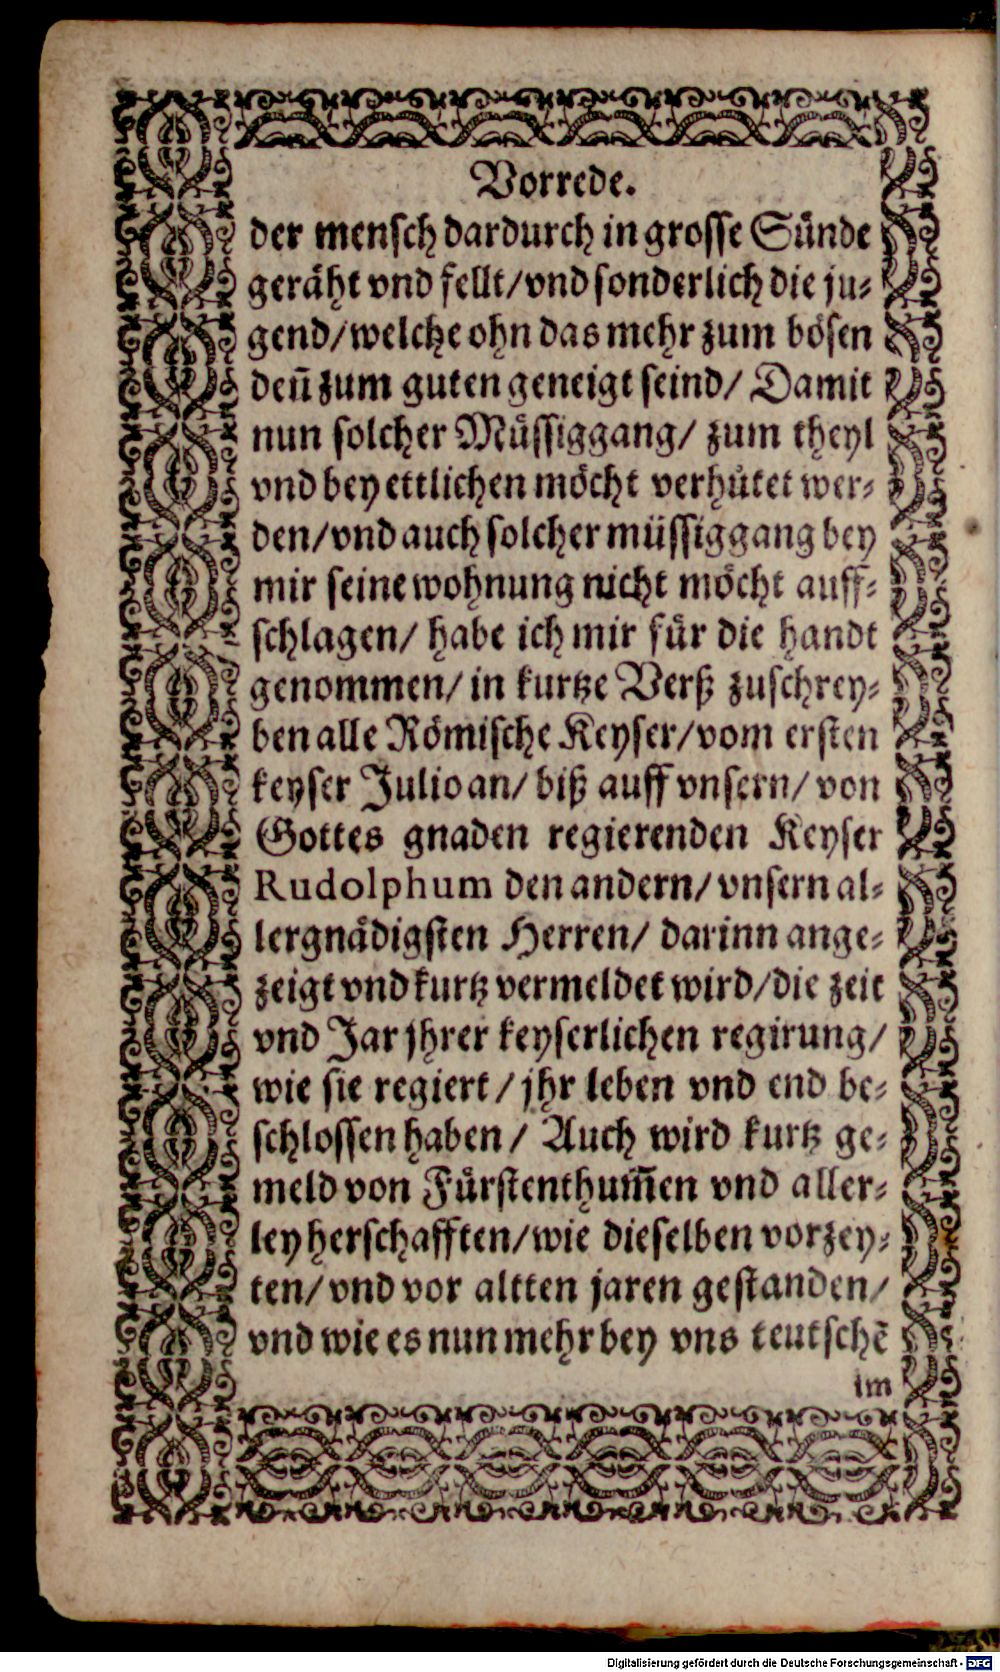 Vorrede.
der mensch dardurch in grosse Sünde
geräht vnd fellt/vnd sonderlich die ju⸗
gend/welche ohn das mehr zum bösen
deñ zum guten geneigt seind/ Damit
nun solcher Müssiggang/ zum theyl
vnd bey ettlichen möcht verhütet wer⸗
den/vnd auch solcher müssiggang bey
mir seine wohnung nicht möcht auff⸗
schlagen/ habe ich mir für die handt
genommen/ in kurtze Verß zuschrey⸗
ben alle Römische Keyser/vom ersten
keyser Julio an/ biß auff vnsern/ von
Gottes gnaden regierenden Keyser
Rudolphum den andern/ vnsern al⸗
lergnädigsten Herren/ darinn ange⸗
zeigt vnd kurtz vermeldet wird/die zeit
vnd Jar jhrer keyserlichen regirung/
wie sie regiert/ jhr leben vnd end be⸗
schlossen haben/ Auch wird kurtz ge⸗
meld von Fürstenthum̃en vnd aller⸗
ley herschafften/wie dieselben vorzey⸗
ten/ vnd vor altten jaren gestanden/
vnd wie es nun mehr bey vns teutschē
im
Digitalisierung gefördert durch die Deutsche Forschungsgemeinschaft - DFG